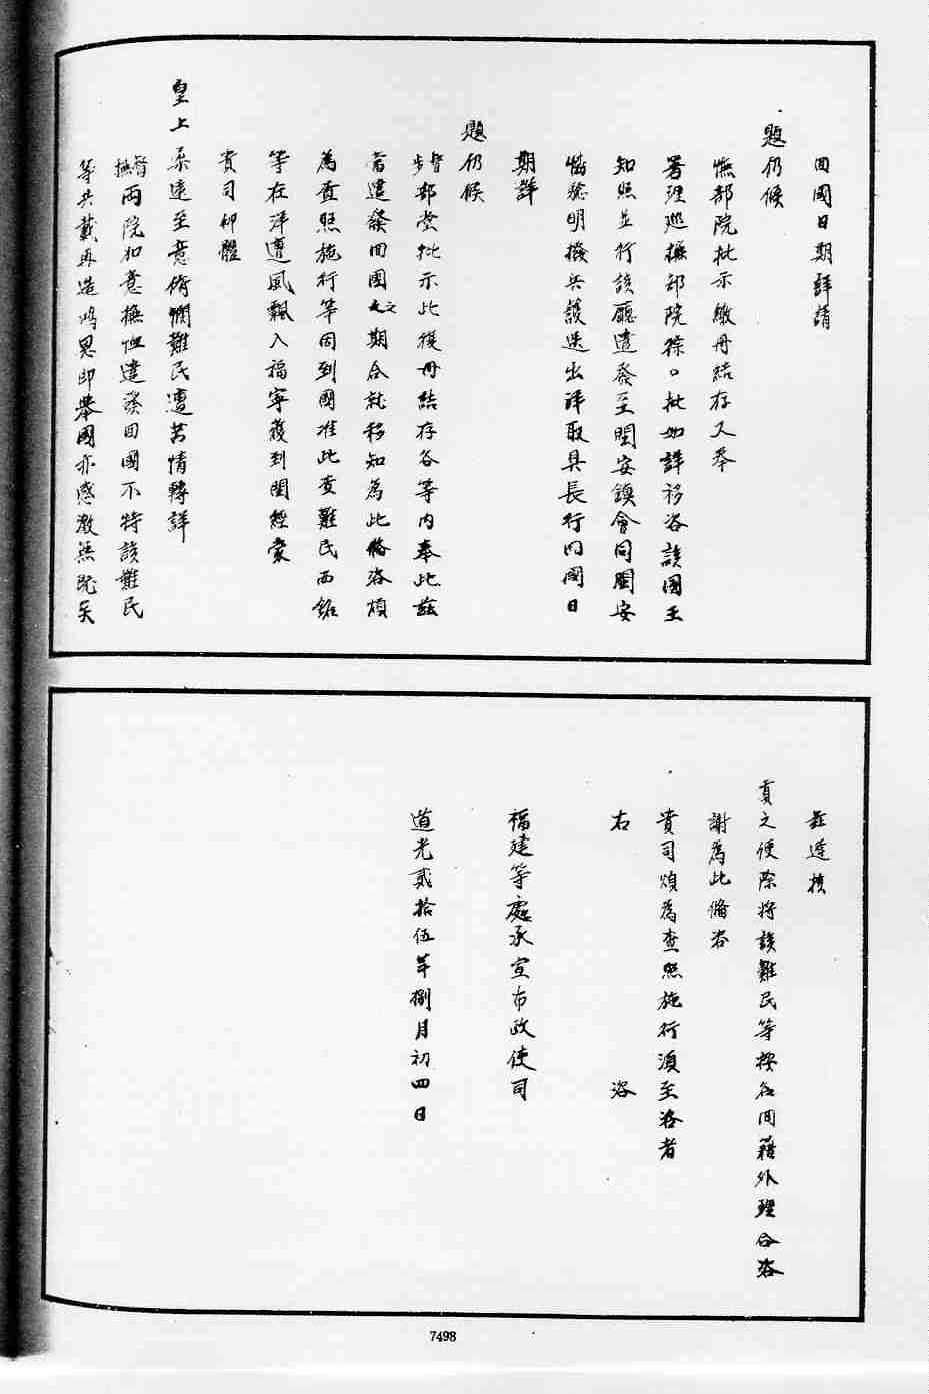 回國日期詳請
題仍候
撫部院批示繳册結存又奉
署理巡撫部院徐〇批如詳移咨該國王
知照並行該廳遣發至閩安鎮會同閩安
協驗明撥兵護送出洋取具長行回國日
期詳
題仍候
督部堂批示此後册結存各等內奉此茲
當遣發回國之期合就移知為此俻咨煩
為查照施行等因到國准此查難民西銘
等在洋遭風飄入福寧護到閩經蒙
貴司仰體
皇上柔遠至意俯憫難民遭苦情轉詳
督撫兩院加意撫恤遣發回國不特該難民
等共戴再造鴻恩即舉國亦感激無既矣
茲逢接
貢之便除將該難民等按名回籍外理合咨
謝為此俻咨
貴司煩為查照施行須至咨者
右 咨
福建等處承宣布政使司
道光貳拾伍年捌月初四日
7498